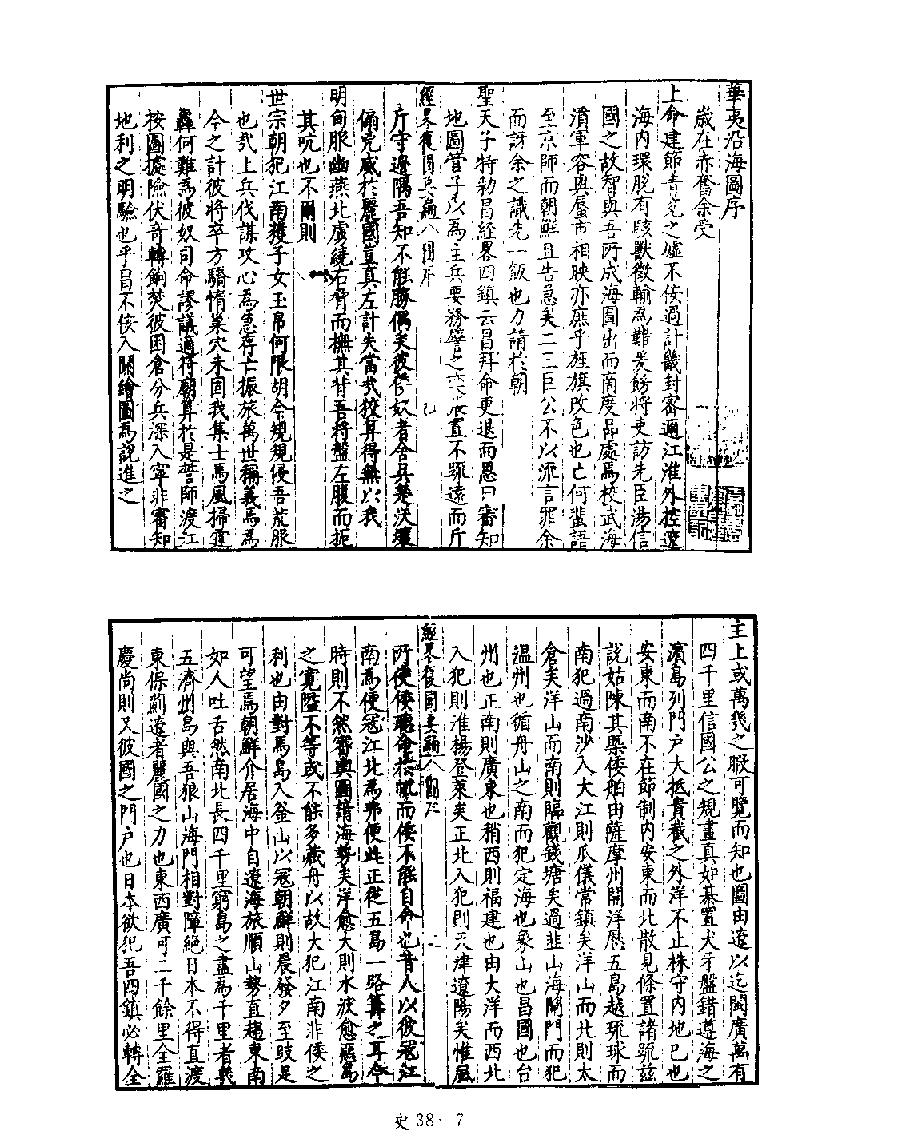 華夷沿海圖序
歲在赤奮余受
上命建節青兗之墟不佞過計畿封審通江淮外控遼
海內環脫有駭獸徵輸為難爰飭將吏訪先臣湯信
國之故智與吾所成海圖出而南度品處焉校武海
濱軍容與蜃市相映亦庶乎旌旗改色也亡何蜚語
至京師而朝鮮且告急矣二三臣公不以流言罪余
而訝余之識先一飯也力請於朝
聖天子特勑昌經畧四鎮云昌拜命更退而思曰審知
地圖管子以為主兵要務譬之置不顧遠而斤
經畧復國要編 圖序
斤守邊隅吾知不能勝偶矣彼奴者合兵卷
偏完威於麗國豈真左計失當哉狡算得無以我
明甸服幽燕北虜繞右脅而撫其背吾將盤左腹而扼
其吭也不爾則
世宗朝犯江南獲子女玉帛何限胡令規規優吾荒服
也哉上兵伐謀攻心為急存亡振旅萬世稱義焉為
今之計彼將卒方驕惰巢穴未固我集士馬風掃霆
轟何難為彼奴司命謬議適符廟算於是誓師渡江
按圖據險伏奇轉餉焚彼困倉分兵深入寧非審知
地利之明驗也乎昌不佞入關繪圖為說進之
主上或萬幾之暇可覽而知也圖由遼以迄閩廣萬有
四千里信國公之規畫真如棊置犬牙盤錯遵海之
濱島列門戶大抵責截之外洋不止株守內地已也
安東而南不在節制內安東而北散見條置諸疏茲
說姑陳其槩倭船由薩摩州開洋歷五島越琉球而
南犯過南沙入大江則瓜儀常鎮矣洋山而北則太
倉矣洋山而南則臨觀錢塘矣過韭山海閘門而犯
溫州也循舟山之南而犯定海也象山也昌國也台
州也正南則廣東也稍西則福建也由大洋而西北
入犯則淮揚登萊矣正北入犯則天津遼陽矣惟風
經畧復國要編 圖序
所使倭聽命於風而倭不能自命也昔人以彼寇江
南為便寇江北為弗便此正從五島一路籌之耳今
時則不然審輿圖諳海勢矣洋愈大則水波愈惡島
之寬隘不等或不能多藏舟以故大犯江南非倭之
利也由對馬島入釜山以寇朝鮮則晨發夕至豉是
可望焉朝鮮介居海中自遼海旅順山勢直趨東南
如人吐舌然南北長四千里窮島之盡為千里者義
五濟州島與吾狼山海門相對障絕日本不得直渡
東保薊遼者麗國之力也東西廣可二千餘里全羅
慶尚則又彼國之門戶也日本欲犯吾四鎮必轉全
史 38-7